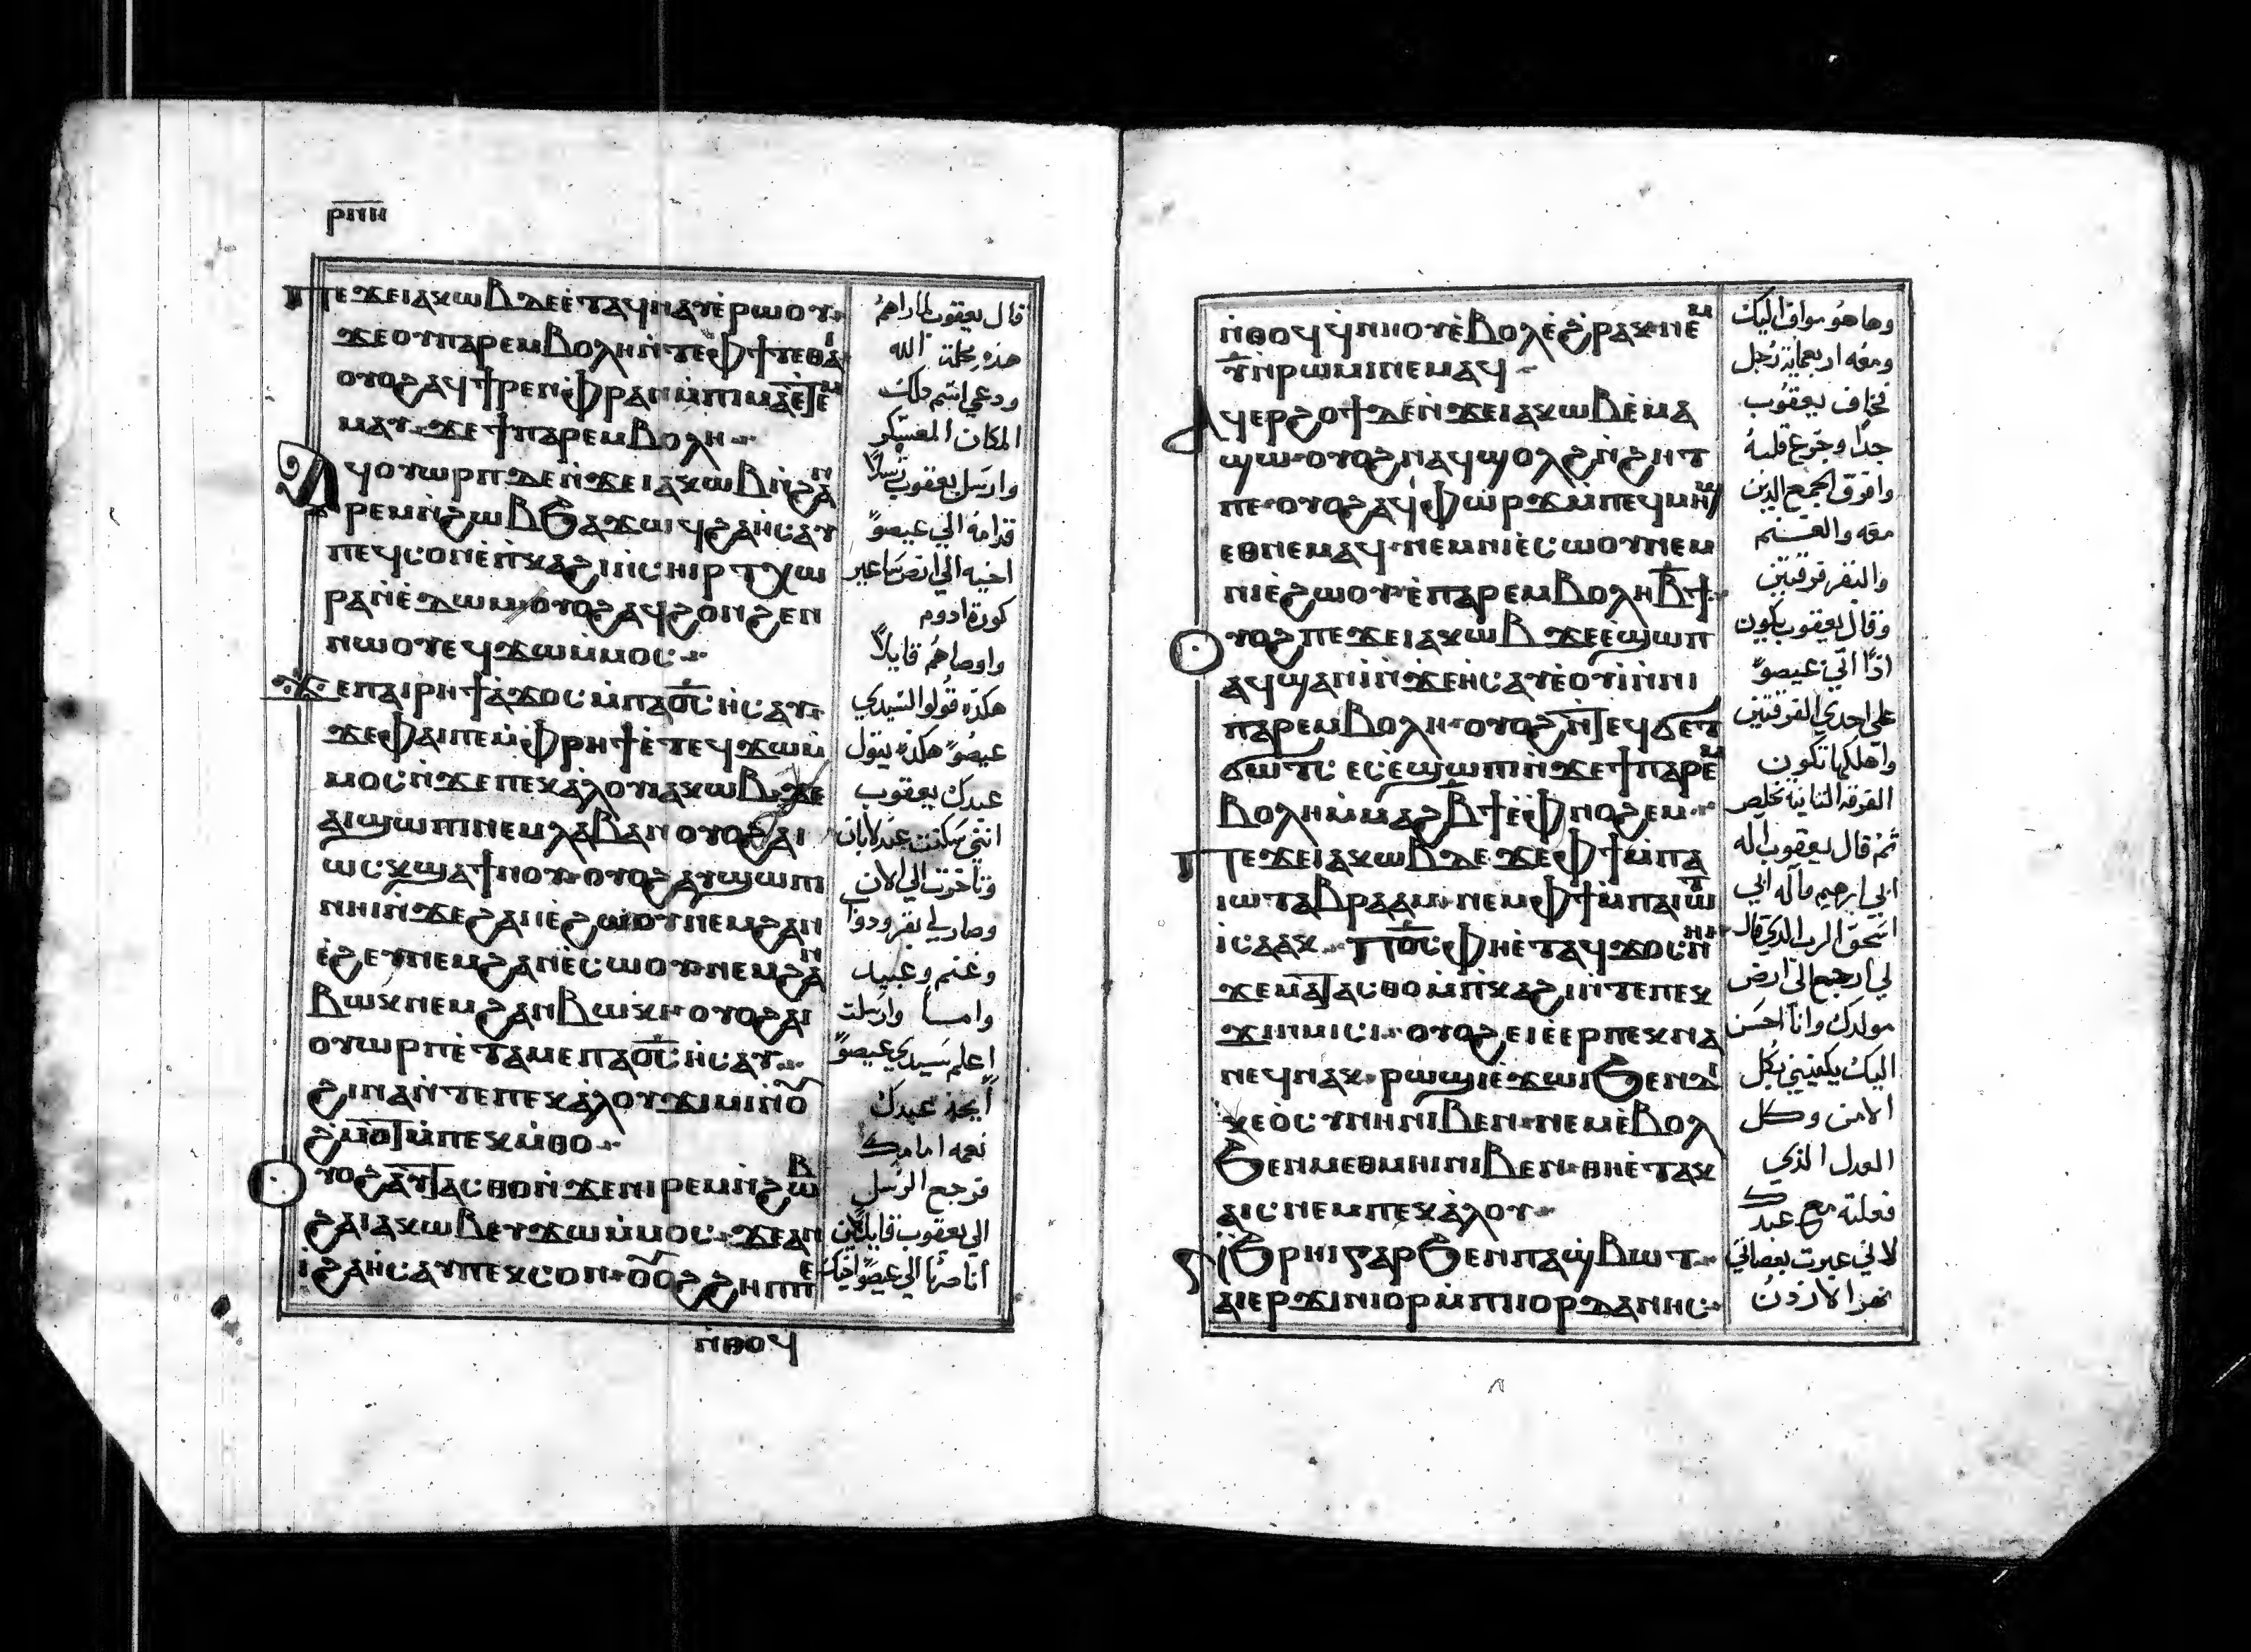 ⲣⲛⲏ
ⲡⲉϫⲉⲓⲁⲕⲱⲃⲇⲉⲉ̀ⲧⲁϥⲛⲁⲩⲉ̀ⲣⲱⲟⲩ
ϫⲉⲟⲩⲡⲁⲣⲉⲙⲃⲟⲗⲏⲛ̀ⲧⲉⲫϯⲧⲉⲑⲁⲓ
ⲟⲩⲟϩⲁϥϯⲣⲉⲛⲫ̀ⲣⲁⲛⲙ̀ⲡⲓⲙⲁⲉ̀ⲧⲉⲙ
ⲙⲁⲩ ϫⲉϯⲡⲁⲣⲉⲙⲃⲟⲗⲏ
ⲁϥⲟⲩⲱⲣⲡⲇⲉⲛ̀ϫⲉⲓⲁⲕⲱⲃⲛ̀ϩⲁⲛ
ⲣⲉⲙⲛ̀ϩⲱⲃϧⲁϫⲱϥϩⲁⲏ̀ⲥⲁⲩ
ⲡⲉϥⲥⲟⲛⲉ̀ⲡ̀ⲕⲁϩⲓⲛ̀ⲥⲏⲓⲣ ⲧⲭⲱ
ⲣⲁⲛ̀ⲉ̀ⲇⲱⲙ ⲟⲩⲟϩⲁϥϩⲟⲛϩⲉⲛ
ⲛⲱⲟⲩⲉϥϫⲱⲙ̀ⲙⲟⲥ
ϫⲉⲡⲁⲓⲣⲏϯⲁ̀ϫⲟⲥⲙ̀ⲡⲁⲟ̅ⲥ̅ⲏ̀ⲥⲁⲩ
ϫⲉⲫⲁⲓⲡⲉⲙ̀ⲫⲣⲏϯⲉ̀ⲧⲉϥϫⲱⲙ̀
ⲙⲟⲥⲛ̀ϫⲉⲡⲉⲕⲁ̀ⲗⲟⲩⲓⲁⲕⲱⲃ ϫⲉ
ⲁⲓϣⲱⲡⲓⲛⲉⲙⲗⲁⲃⲁⲛ ⲟⲩⲟϩⲁⲓ
ⲱⲥⲕϣⲁϯⲛⲟⲩ ⲟⲩⲟϩⲁⲩϣⲱⲡⲓ
ⲛⲏⲓⲛ̀ϫⲉϩⲁⲛⲉ̀ϩⲱⲟⲩⲛⲉⲙϩⲁⲛ
ⲉ̀ϩⲉⲩⲛⲉⲙϩⲁⲛⲉ̀ⲥⲱⲟⲩ ⲛⲉⲙϩⲁⲛ
ⲃⲱⲕⲛⲉⲙϩⲁⲛⲃⲱⲕⲓ ⲟⲩⲟϩⲁⲓ
ⲟⲩⲱⲣⲡⲉ̀ⲧⲁⲙⲉⲡⲁⲟ̅ⲥ̅ⲏ̀ⲥⲁⲩ
ϩⲓⲛⲁⲛ̀ⲧⲉⲡⲉⲕⲁ̀ⲗⲟⲩϫⲓⲙⲓⲛ̀ⲟⲩ
ϩ̀ⲙⲟⲧⲙ̀ⲡⲉⲕⲙ̀ⲑⲟ
ⲟⲩⲟϩⲁⲩⲧⲁⲥⲑⲟⲛ̀ϫⲉⲛⲓⲣⲉⲙⲛ̀ϩⲱⲃ
ϩⲁⲓⲁⲕⲱⲃⲉⲩϫⲱⲙ̀ⲙⲟⲥ ϫⲉⲁⲛ
ⲓ̀ϩⲁⲏ̀ⲥⲁⲩⲡⲉⲕⲥⲟⲛ ⲟⲩⲟϩϩⲏⲡⲡⲉ
ⲛ̀ⲑⲟϥ
قال يعقوب لما راهم
هذه محلة الله
ودعي اسم ذلك
المكان المعسكر
وارسل يعقوب رسلاً
قدامه الي عيصو
اخيه الي ارض ساعير
كورة ادوم
واوصاهم قايلاً
هكذه قولوا لسيدي
عيصو هكذه يقول
عبدك يعقوب
انني سكنت عند لابان
وتاخرت الي الان
وصار لي بقر ودواب
وغنم وعبيد
وامـاً وارسلت
اعلم سيدي عيصو
ليجد عبدك
نعمه امامك
فرجع الرسل
الي يعقوب قايلين
اننا صرنا الي عيصو اخيك
ⲛ̀ⲑⲟϥϥ̀ⲛⲏⲟⲩⲉ̀ⲃⲟⲗⲉ̀ϩ̀ⲣⲁⲕ ⲛⲉⲙ
ⲩ̅ⲛ̀ⲣⲱⲙⲓⲛⲉⲙⲁϥ
ⲁϥⲉⲣϩⲟϯⲇⲉⲛ̀ϫⲉⲓⲁⲕⲱⲃⲉ̀ⲙⲁ
ϣⲱ ⲟⲩⲟϩⲛⲁϥϣⲟⲗϩⲛ̀ϩⲏⲧ
ⲡⲉ ⲟⲩⲟϩⲁϥⲫⲱⲣϫⲙ̀ⲡⲉϥⲙⲏϣ
ⲉⲑⲛⲉⲙⲁϥ ⲛⲉⲙⲛⲓⲉ̀ⲥⲱⲟⲩⲛⲉⲙ
ⲛⲓⲉ̀ϩⲱⲟⲩⲉ̀ⲡⲁⲣⲉⲙⲃⲟⲗⲏⲃ̅ϯ
ⲟⲩⲟϩⲡⲉϫⲉⲓⲁⲕⲱⲃ ϫⲉⲉ̀ϣⲱⲡ
ⲁϥϣⲁⲛⲓ̀ⲛ̀ϫⲉⲏ̀ⲥⲁⲩⲉ̀ⲟⲩⲓ̀ⲛ̀ⲛⲓ
ⲡⲁⲣⲉⲙⲃⲟⲗⲏ ⲟⲩⲟϩⲛ̀ⲧⲉϥϭⲉⲧ
ϭⲱⲧⲥ ⲉⲥⲉ̀ϣⲱⲡⲓⲛ̀ϫⲉϯⲡⲁⲣⲉⲙ
ⲃⲟⲗⲏⲙ̀ⲙⲁϩⲃ̅ϯⲉ̀ⲫⲛⲟϩⲉⲙ
ⲡⲉϫⲉⲓⲁⲕⲱⲃⲇⲉ ϫⲉⲫϯⲙ̀ⲡⲁ
ⲓⲱⲧⲁⲃⲣⲁⲁⲙ ⲛⲉⲙⲫϯⲙ̀ⲡⲁⲓⲱⲧ
ⲓⲥⲁⲁⲕ ⲡⲟ̅ⲥ̅ⲫⲏⲉ̀ⲧⲁϥϫⲟⲥⲛⲏⲓ
ϫⲉⲙⲁⲧⲁⲥⲑⲟⲙ̀ⲡ̀ⲕⲁϩⲓⲛ̀ⲧⲉⲡⲉⲕ
ϫⲓⲛⲙⲓⲥⲓ ⲟⲩⲟϩⲉⲓⲉ̀ⲉⲣⲡⲉⲕⲛⲁ
ⲛⲉϥⲛⲁⲕ ⲣⲱϣⲓⲉ̀ϫⲱⲓϧⲉⲛⲇⲓ
ⲕⲉⲟ̀ⲥⲩⲛⲏⲛⲓⲃⲉⲛ ⲛⲉⲙⲉ̀ⲃⲟⲗ
ϧⲉⲛⲙⲉⲑⲙⲏⲓⲛⲓⲃⲉⲛ ⲑⲏⲉ̀ⲧⲁⲕ
ⲁⲓⲥⲛⲉⲙⲡⲉⲕⲁ̀ⲗⲟⲩ
ϧⲣⲏⲓⲅⲁⲣϧⲉⲛⲡⲁϣ̀ⲃⲱⲧ
ⲁⲓⲉⲣϫⲓⲛⲓⲟⲣⲙ̀ⲡⲓⲓⲟⲣⲇⲁⲛⲏⲥ
وها هو مواف اليك
ومعه اربعماية رجل
فخاف يعقوب
جداً وجزع قلبه
وافرق الجمع الذين
معه والغنم
والبقر فرقتين
وقال يعقوب يكون
اذا اتي عيصو
علي احدي الفرقتين
واهلكها تكون
الفرقه الثانيه تخلص
ثم قال يعقوب اله
ابي ابرهيم واله ابي
اسحق الرب الذي قال
لي ارجع الي ارض
مولدك وانا احسن
اليك يكفيني بكل
الامن وكل
العدل الذي
فعلته مع عبدك
لاني عبرت بعصاي
نهر الاردن